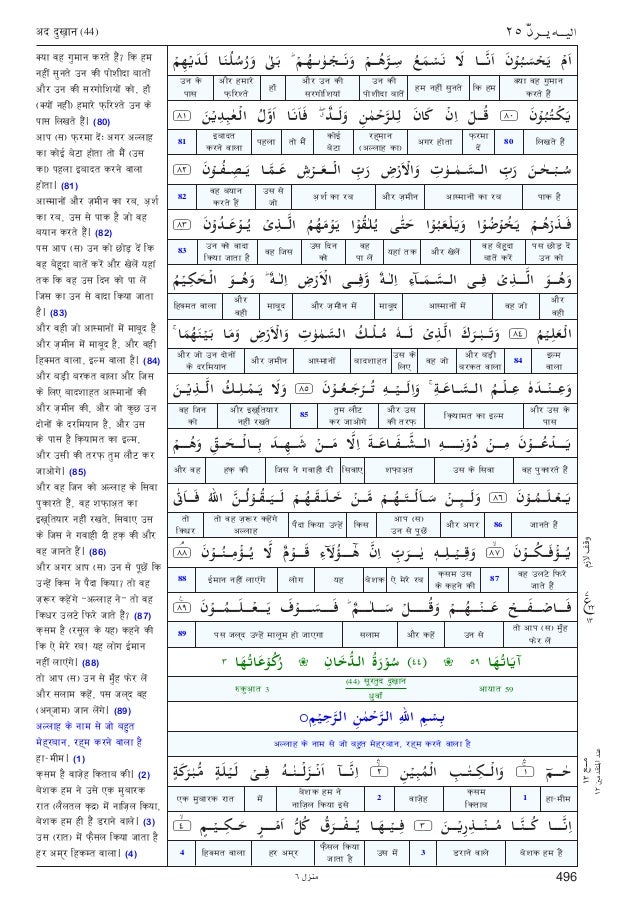 अद दुख़ान (44)
اليه يرد ٢٥
क्या वह गुमान करते हैं? कि हम
नहीं सुनते उन की पोशीदा बातों
और उन की सरगोशियों को, हाँ
(क्यों नहीं) हमारे फ़रिश्ते उन के
पास लिखते हैं। (80)
आप (स) फ़रमा दें: अगर अल्लाह
का कोई बेटा होता तो मैं (उस
का) पहला इबादत करने वाला
होता। (81)
आस्मानों और ज़मीन का रब, अ़र्श
का रब, उस से पाक है जो वह
बयान करते हैं। (82)
पस आप (स) उन को छोड़ दें कि
वह बेहूदा बातें करें और खेलें यहां
तक कि वह उस दिन को पा लें
जिस का उन से वादा किया जाता
है। (83)
और वही जो आस्मानों में माबूद है
और ज़मीन में माबूद है, और वही
हिक्मत वाला, इल्म वाला है। (84)
और बड़ी बरकत वाला और जिस
के लिए बादशाहत आस्मानों की
और ज़मीन की, और जो कुछ उन
दोनों के दरमियान है, और उस
के पास है क़ियामत का इल्म,
और उसी की तरफ़ तुम लौट कर
जाओगे। (85)
और वह जिन को अल्लाह के सिवा
पुकारते हैं, वह शफ़ाअ़त का
इख़्तियार नहीं रखते, सिवाए उस
के जिस ने गवाही दी हक़ की और
वह जानते हैं। (86)
और अगर आप (स) उन से पूछें कि
उन्हें किस ने पैदा किया? तो वह
ज़रूर कहेंगे "अल्लाह ने" तो वह
किधर उलटे फिरे जाते हैं? (87)
क़सम है (रसूल के यह) कहने की
कि ऐ मेरे रब! यह लोग ईमान
नहीं लाएंगे। (88)
तो आप (स) उन से मुँह फेर लें
और सलाम कहें, पस जल्द वह
(अन्जाम) जान लेंगे। (89)
अल्लाह के नाम से जो बहुत
मेहरबान, रह्म करने वाला है
हा-मीम। (1)
क़सम है वाज़ेह किताब की। (2)
बेशक हम ने उसे एक मुबारक
रात (लैलतुल क़द्र) में नाज़िल किया,
बेशक हम ही हैं डराने वाले। (3)
उस (रात) में फ़ैसल किया जाता है
हर अम्र हिक्मत वाला। (4)
اَمْ يَحْسَبُوْنَ اَنَّا لَا نَسْمَعُ سِرَّهُمْ وَنَجْوٰىهُمْ ؕ بَلٰى وَرُسُلُنَا لَدَيْهِمْ
क्या वह गुमान करते हैं कि हम हम नहीं सुनते उन की पोशीदा बातें और उन की सरगोशियां हाँ और हमारे फ़रिश्ते उन के पास
يَكْتُبُوْنَ ٨٠ قُلْ اِنْ كَانَ لِلرَّحْمٰنِ وَلَدٌ ۖ فَاَنَا اَوَّلُ الْعٰبِدِيْنَ ٨١
लिखते हैं 80 फ़रमा दें अगर होता रह्मान (अल्लाह का) कोई बेटा तो मैं पहला इबादत करने वाला 81
سُبْحٰنَ رَبِّ السَّمٰوٰتِ وَالْاَرْضِ رَبِّ الْعَرْشِ عَمَّا يَصِفُوْنَ ٨٢
पाक है आस्मानों का रब और ज़मीन अ़र्श का रब उस से जो वह बयान करते हैं 82
فَذَرْهُمْ يَخُوْضُوْا وَيَلْعَبُوْا حَتّٰى يُلٰقُوْا يَوْمَهُمُ الَّذِيْ يُوْعَدُوْنَ ٨٣
पस छोड़ दें उन को वह बेहूदा बातें करें और खेलें यहां तक वह पा लें उस दिन को वह जिस उन को वादा किया जाता है 83
وَهُوَ الَّذِيْ فِى السَّمَآءِ اِلٰهٌ وَّفِى الْاَرْضِ اِلٰهٌ ؕ وَهُوَ الْحَكِيْمُ
और वही वह जो आस्मानों में माबूद और ज़मीन में माबूद और वही हिक्मत वाला
الْعَلِيْمُ ٨٤ وَتَبٰرَكَ الَّذِيْ لَهٗ مُلْكُ السَّمٰوٰتِ وَالْاَرْضِ وَمَا بَيْنَهُمَا ۚ
इल्म वाला 84 और बड़ी बरकत वाला वह जो उस के लिए बादशाहत आस्मानों और ज़मीन और जो उन दोनों के दरमियान
وَعِنْدَهٗ عِلْمُ السَّاعَةِ ۚ وَاِلَيْهِ تُرْجَعُوْنَ ٨٥ وَلَا يَمْلِكُ الَّذِيْنَ
और उस के पास क़ियामत का इल्म और उस की तरफ़ तुम लौट कर जाओगे 85 और इख़्तियार नहीं रखते वह जिन को
يَدْعُوْنَ مِنْ دُوْنِهِ الشَّفَاعَةَ اِلَّا مَنْ شَهِدَ بِالْحَقِّ وَهُمْ
वह पुकारते हैं उस के सिवा शफ़ाअ़त सिवाए जिस ने गवाही दी हक़ की और वह
يَعْلَمُوْنَ ٨٦ وَلَئِنْ سَاَلْتَهُمْ مَّنْ خَلَقَهُمْ لَيَقُوْلُنَّ اللّٰهُ فَاَنّٰى
जानते हैं 86 और अगर आप (स) उन से पूछें किस पैदा किया उन्हें तो वह ज़रूर कहेंगे अल्लाह तो किधर
يُؤْفَكُوْنَ ٨٧ وَقِيْلِهٖ يٰرَبِّ اِنَّ هٰٓؤُلَآءِ قَوْمٌ لَّا يُؤْمِنُوْنَ ٨٨
वह उलटे फिरे जाते हैं 87 क़सम उस के कहने की ऐ मेरे रब बेशक यह लोग ईमान नहीं लाएंगे 88
فَاصْفَحْ عَنْهُمْ وَقُلْ سَلٰمٌ ؕ فَسَوْفَ يَعْلَمُوْنَ ٨٩
तो आप (स) मुँह फेर लें उन से और कहें सलाम पस जल्द उन्हें मालूम हो जाएगा 89
اٰيَاتُهَا ٥٩ (٤٤) سُوْرَةُ الدُّخَانِ رُكُوْعَاتُهَا ٣
आयात 59 (44) सूरतुद दुख़ान धुवाँ रुकुआ़त 3
بِسْمِ اللّٰهِ الرَّحْمٰنِ الرَّحِيْمِ
अल्लाह के नाम से जो बहुत मेहरबान, रह्म करने वाला है
حٰمٓ ١ وَالْكِتٰبِ الْمُبِيْنِ ٢ اِنَّآ اَنْزَلْنٰهُ فِيْ لَيْلَةٍ مُّبٰرَكَةٍ
हा-मीम 1 क़सम किताब वाज़ेह 2 बेशक हम ने नाज़िल किया इसे में एक मुबारक रात
اِنَّا كُنَّا مُنْذِرِيْنَ ٣ فِيْهَا يُفْرَقُ كُلُّ اَمْرٍ حَكِيْمٍ ٤
बेशक हम हैं डराने वाले 3 उस में फ़ैसल किया जाता है हर अम्र हिक्मत वाला 4
وقف لازم
منزل ٦
496